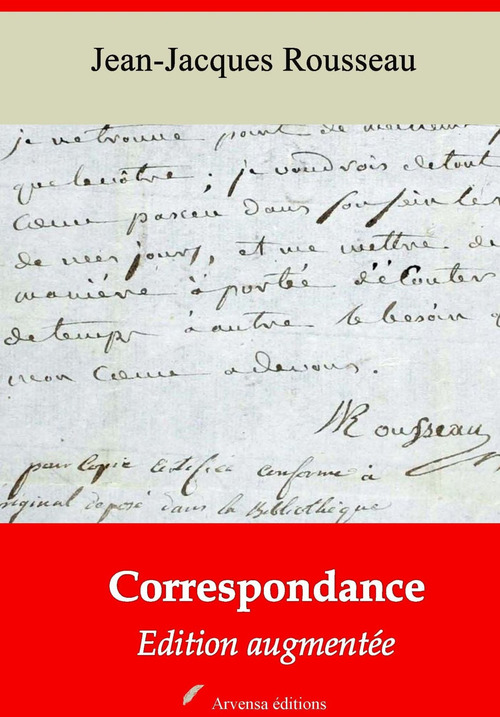 Jean-Jacques Rousseau
je ne trouve point de meilleur
que le nôtre ; je voudrois de tout
Cœur passer dans son sein le
de mes jours, et me mettre de
maniére à portée d'écouter
de temps à autre le besoin
mon Cœur a de vous.
Rousseau
pour Copie Certifiée conforme à
original déposé dans la Bibliothèque
Correspondance
Edition augmentée
Arvensa éditions